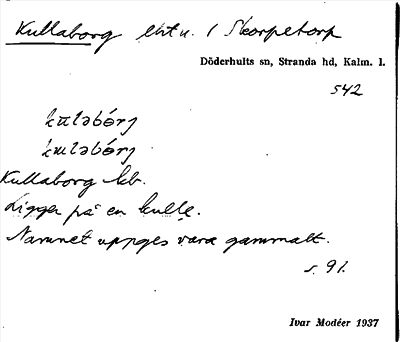 Kullaborg lht u. / Skorpetorp
Döderhults sn, Stranda hd, Kalm. l.
542
kuləbórj
kɯləbórj
Kullaborg kb.
Ligger på en kulle.
Namnet uppges vara gammalt.
s. 91.
Ivar Modéer 1937